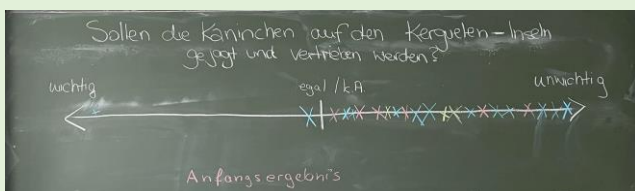 Sollen die Kaninchen auf den Kerguelen-Inseln
gejagt und vertrieben werden?
wichtig
egal / k.A.
unwichtig
Anfangsergebnis